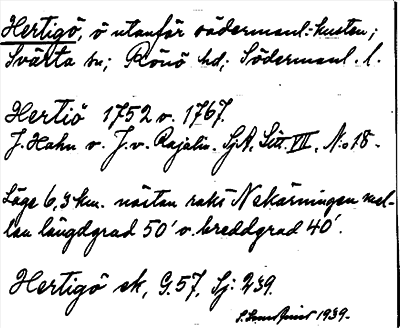 Hertigö, ö utanför södermanl:-kusten;
Svärta sn; Rönö hd; Södermanl. l.
Hertiö 1752 v. 1767.
J. Hahn v. J. v. Rajalin. SjA, Litt. VII, N:o 18.
Läge 6,3 km. nästan rakt N skärningen mel-
lan längdgrad 50' v. breddgrad 40'.
Hertigö ek, G.57, Sj: 239.
1939.